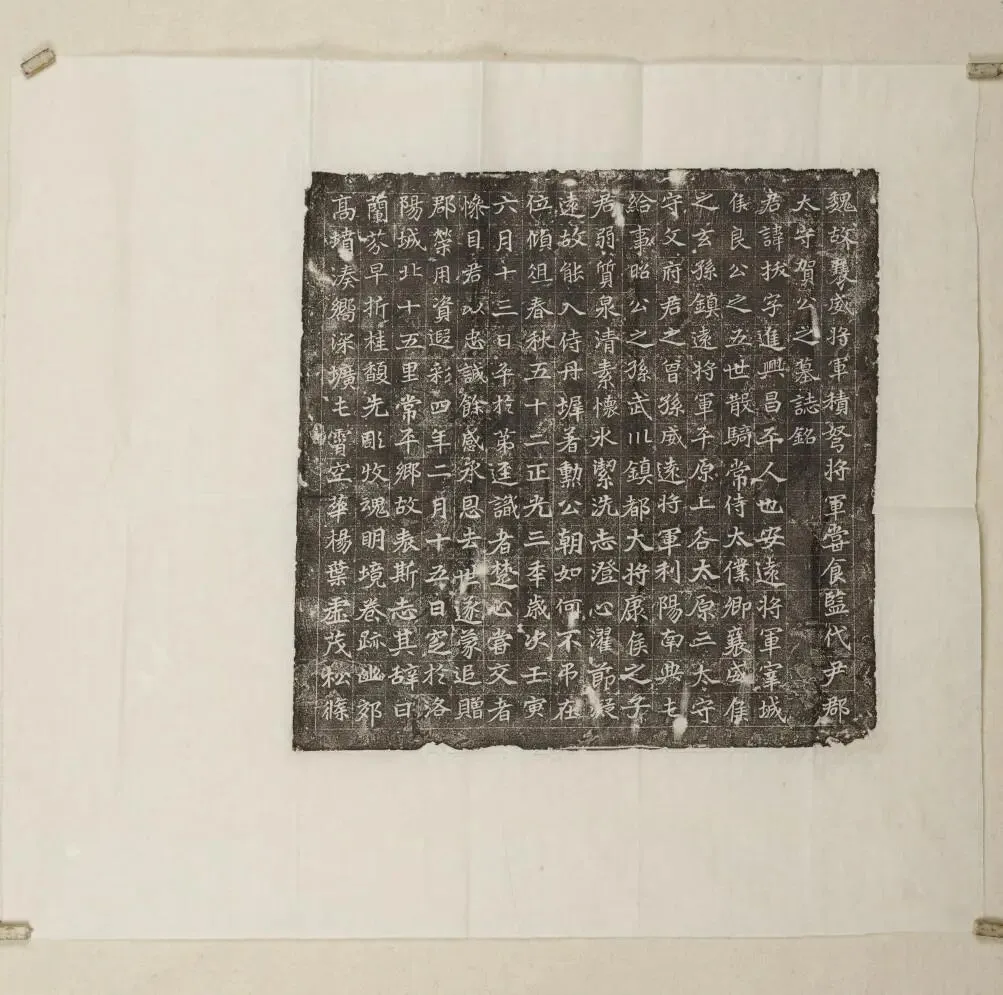 魏故襄威將軍積弩將軍嘗食監代尹郡
太守賀公之墓誌銘
君諱拔字進興昌平人也安遠將軍宰城
侯良公之五世散騎常侍太僕卿襄威侯
之玄孫鎮遠將軍平原上谷太原三太守
守文府君之曾孫威遠將軍利陽南興七
給事昭公之孫武川鎮都大將康侯之子
君弱質泉清素懷水潔洗志澄心濯節凝
遠故能入侍丹墀著勳公朝如何不弔在
位傾徂春秋五十二正光三年歲次壬寅
六月十三日卒於第逕識者楚心嘗交者
慘目君以忠誠餘感永恩去世遂蒙追贈
郡榮用資遐彩四年二月十五日窆於洛
陽城北十五里常平鄉故表斯志其辞曰
蘭芬早折桂馥先彫牧魂明境卷跡幽郊
高墳湊鄉深壙七霄空華楊葉虛茂松篠